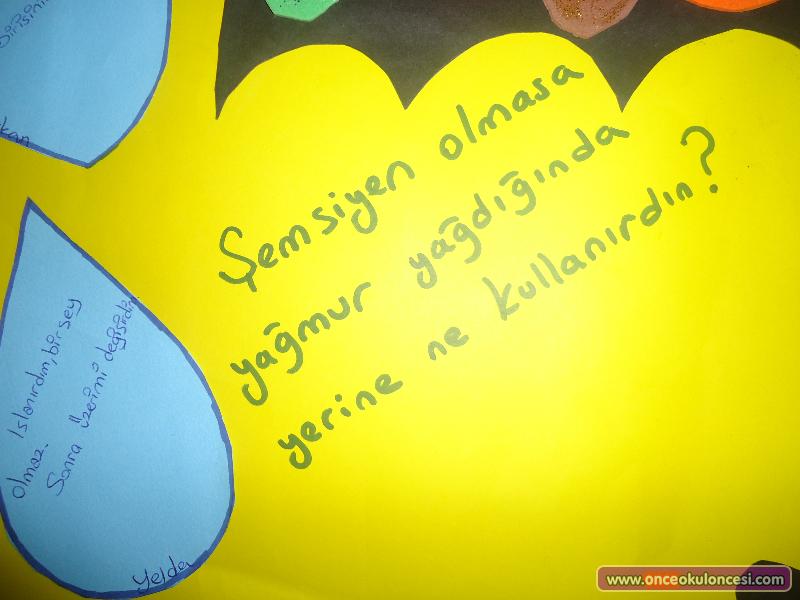 birisinin
kan
Şemsiyen olmasa
yağmur yağdığında
yerine ne kullanırdın?
Islanırdım, birşey
olmaz.
Sonra üzerimi değişirdim
Yelda
www.onceokuloncesi.com